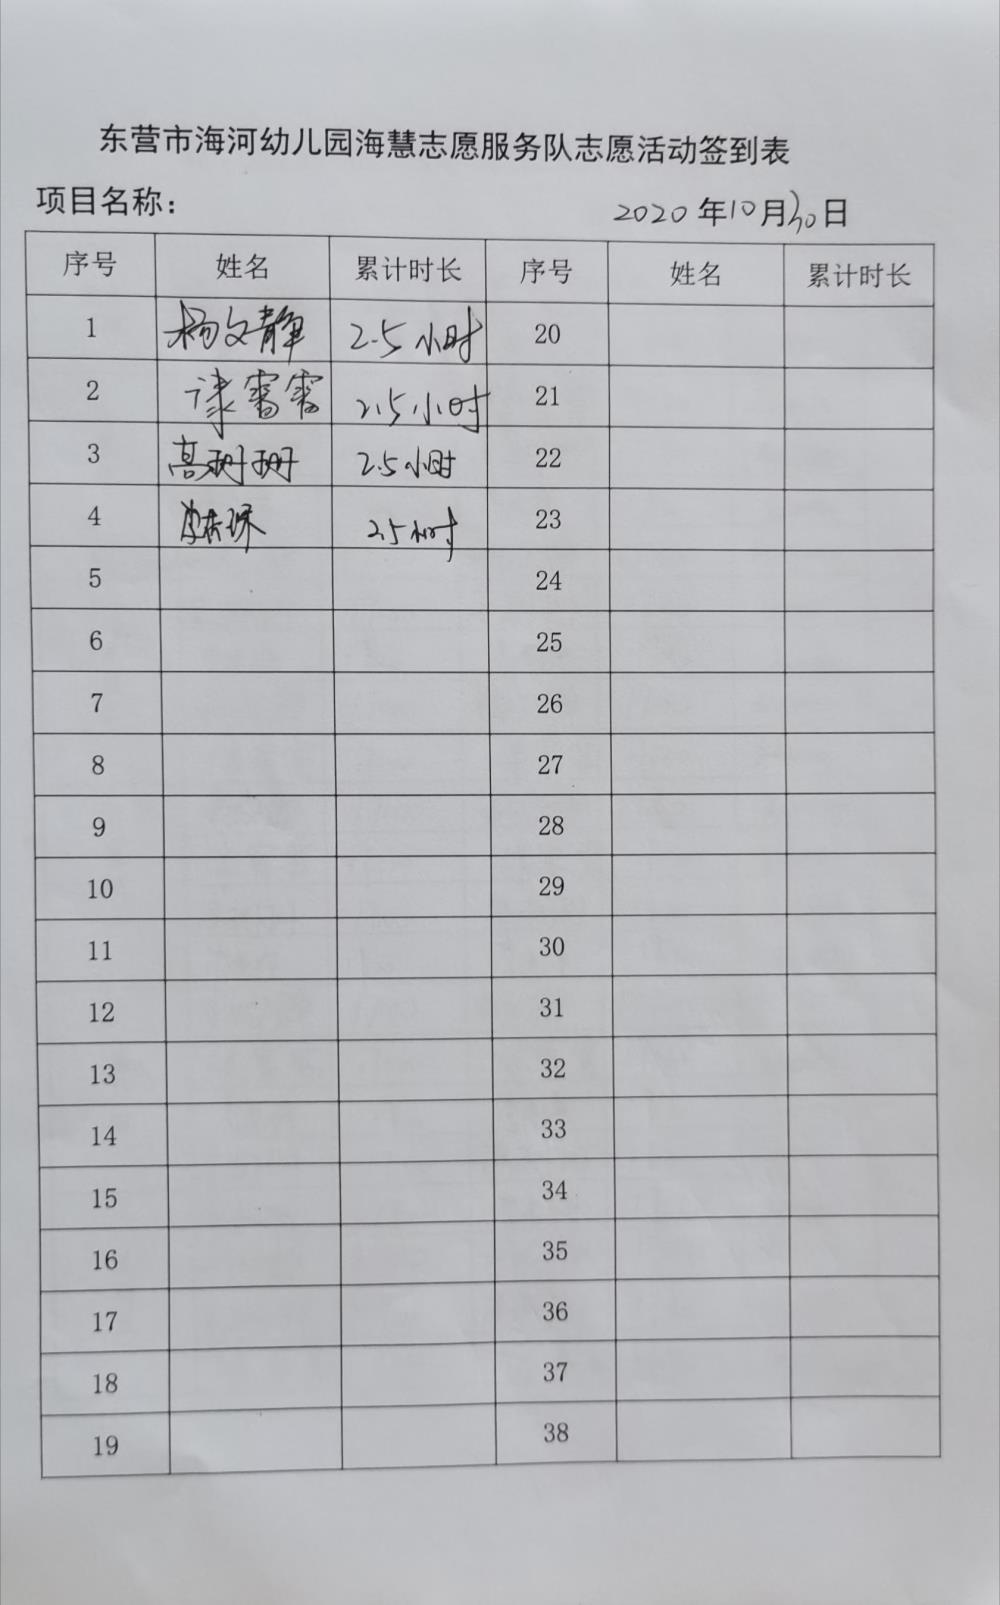 东营市海河幼儿园海慧志愿服务队志愿活动签到表
项目名称： 2020 年 10 月 30 日
序号 姓名 累计时长 序号 姓名 累计时长
1 杨文静 2.5小时 20
2 2.5小时 21
3 高珊珊 2.5小时 22
4 2.5小时 23
5 24
6 25
7 26
8 27
9 28
10 29
11 30
12 31
13 32
14 33
15 34
16 35
17 36
18 37
19 38